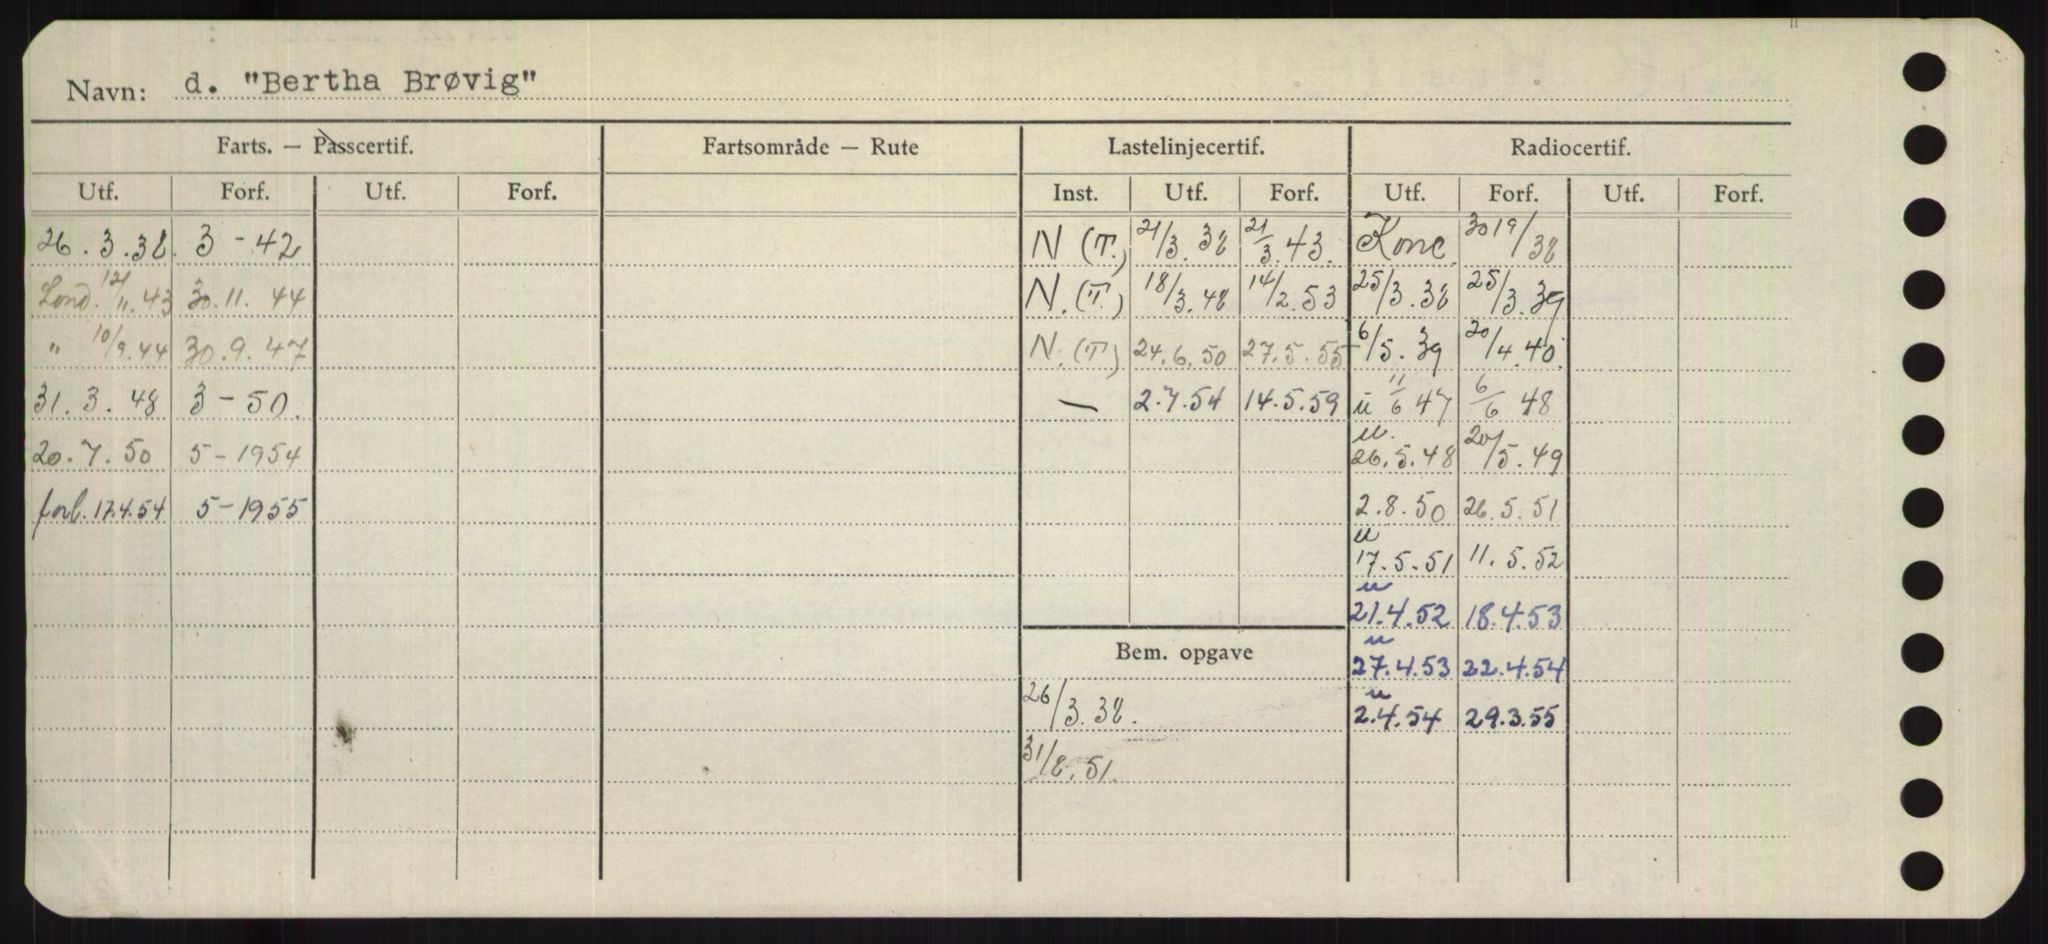 Navn: d. "Bertha Brøvig"
Farts. — Passcertif. Fartsområde — Rute Lastelinjecertif. Radiocertif.
Utf. Forf. Utf. Forf. Inst. Utf. Forf. Utf. Forf. Utf. Forf.
26.3.38. 3-42 N (T.) 21/3.38 21/3.43. Konc. 30 19/38
Lond. 12/11.43 30.11.44 N.(T.) 18/3.48 14/2.53 25/3.38 25/3.39
" 10/9.44 30.9.47 N.(T) 24.6.50 27.5.55 6/5.39 20/4.40
31.3.48 3-50. — 2.7.54 14.5.59 u 11/6 47 6/6 48
20.7.50 5-1954 u. 26.5.48 20/5.49
forl. 17.4.54 5-1955 2.8.50 26.5.51
u 17.5.51 11.5.52
u 21.4.52 18.4.53
Bem. opgave u 27.4.53 22.4.54
26/3.38. u 2.4.54 29.3.55
31/8.51.